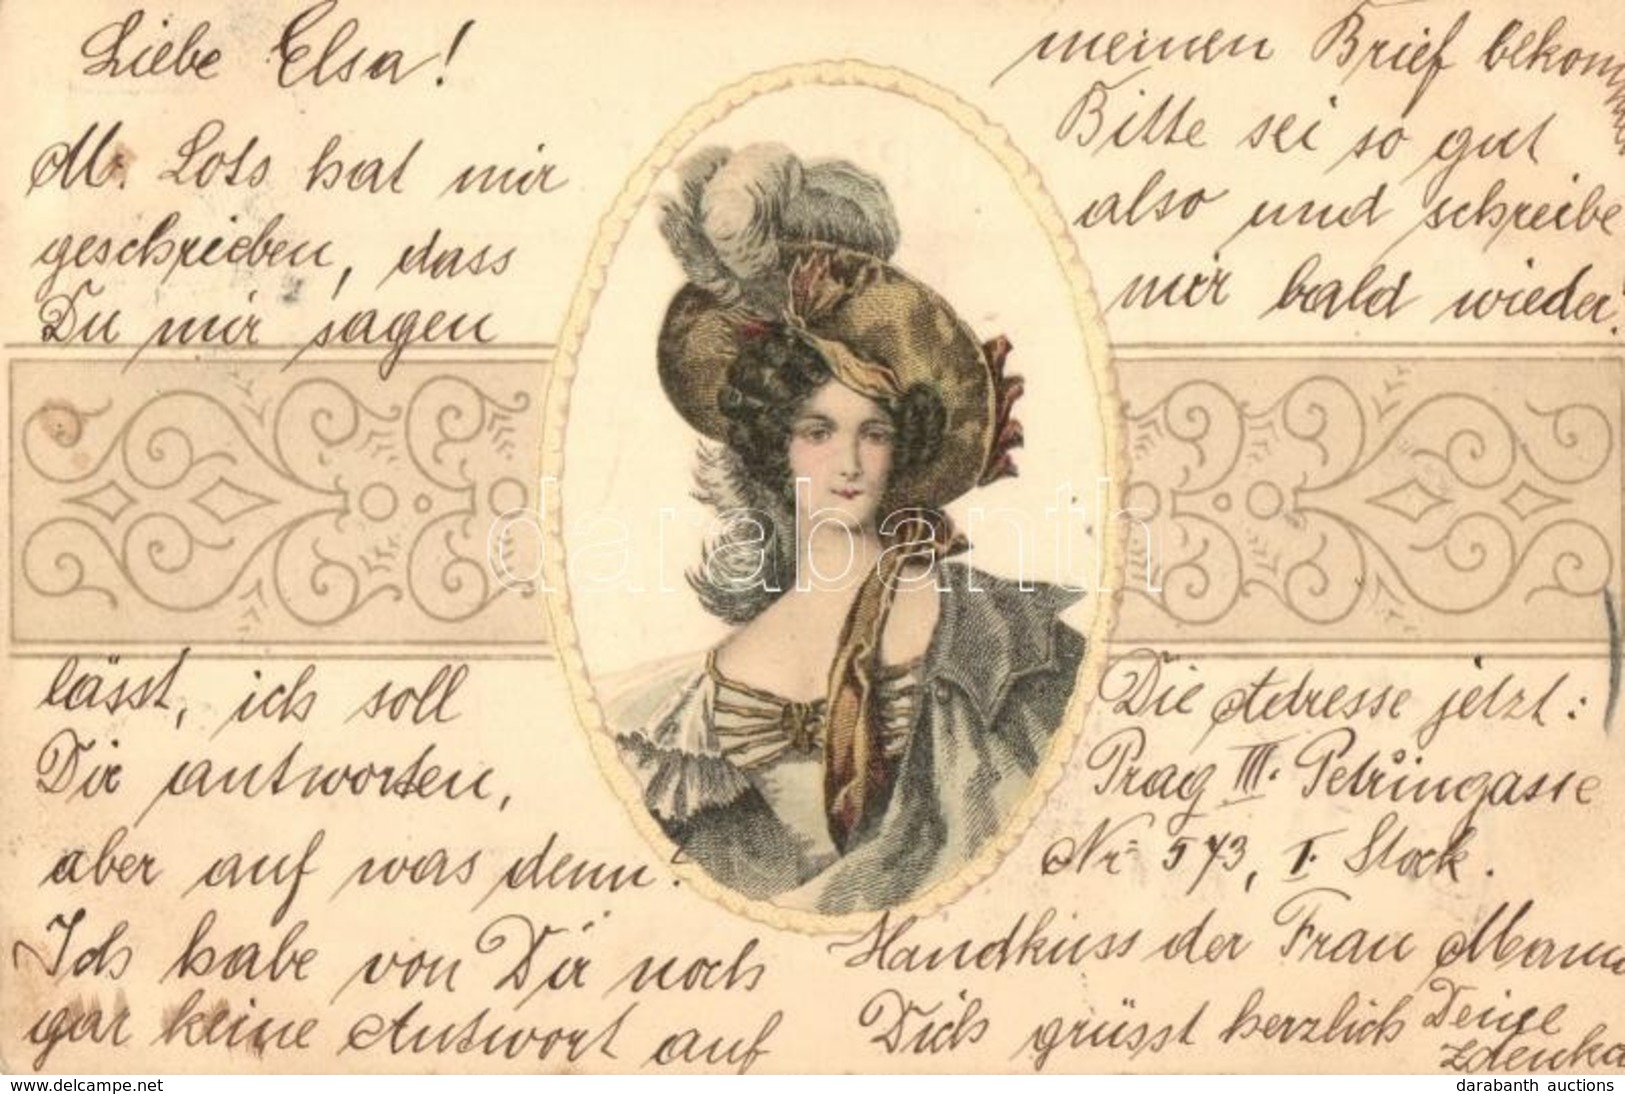 Liebe Elsa!
M. Lots hat mir
geschrieben, dass
Du mir sagen
lässt, ich soll
Dir antworten,
aber auf was denn?
Ich habe von Dir noch
gar keine Antwort auf
meinen Brief bekommen
Bitte sei so gut
also und schreibe
mir bald wieder.
Die Adresse jetzt:
Prag III. Petřingasse
Nr 573, I. Stock.
Handkuss der Frau Mama
Dich grüsst herzlich Deine
Zdenka
darabanth
www.delcampe.net
darabanth auctions